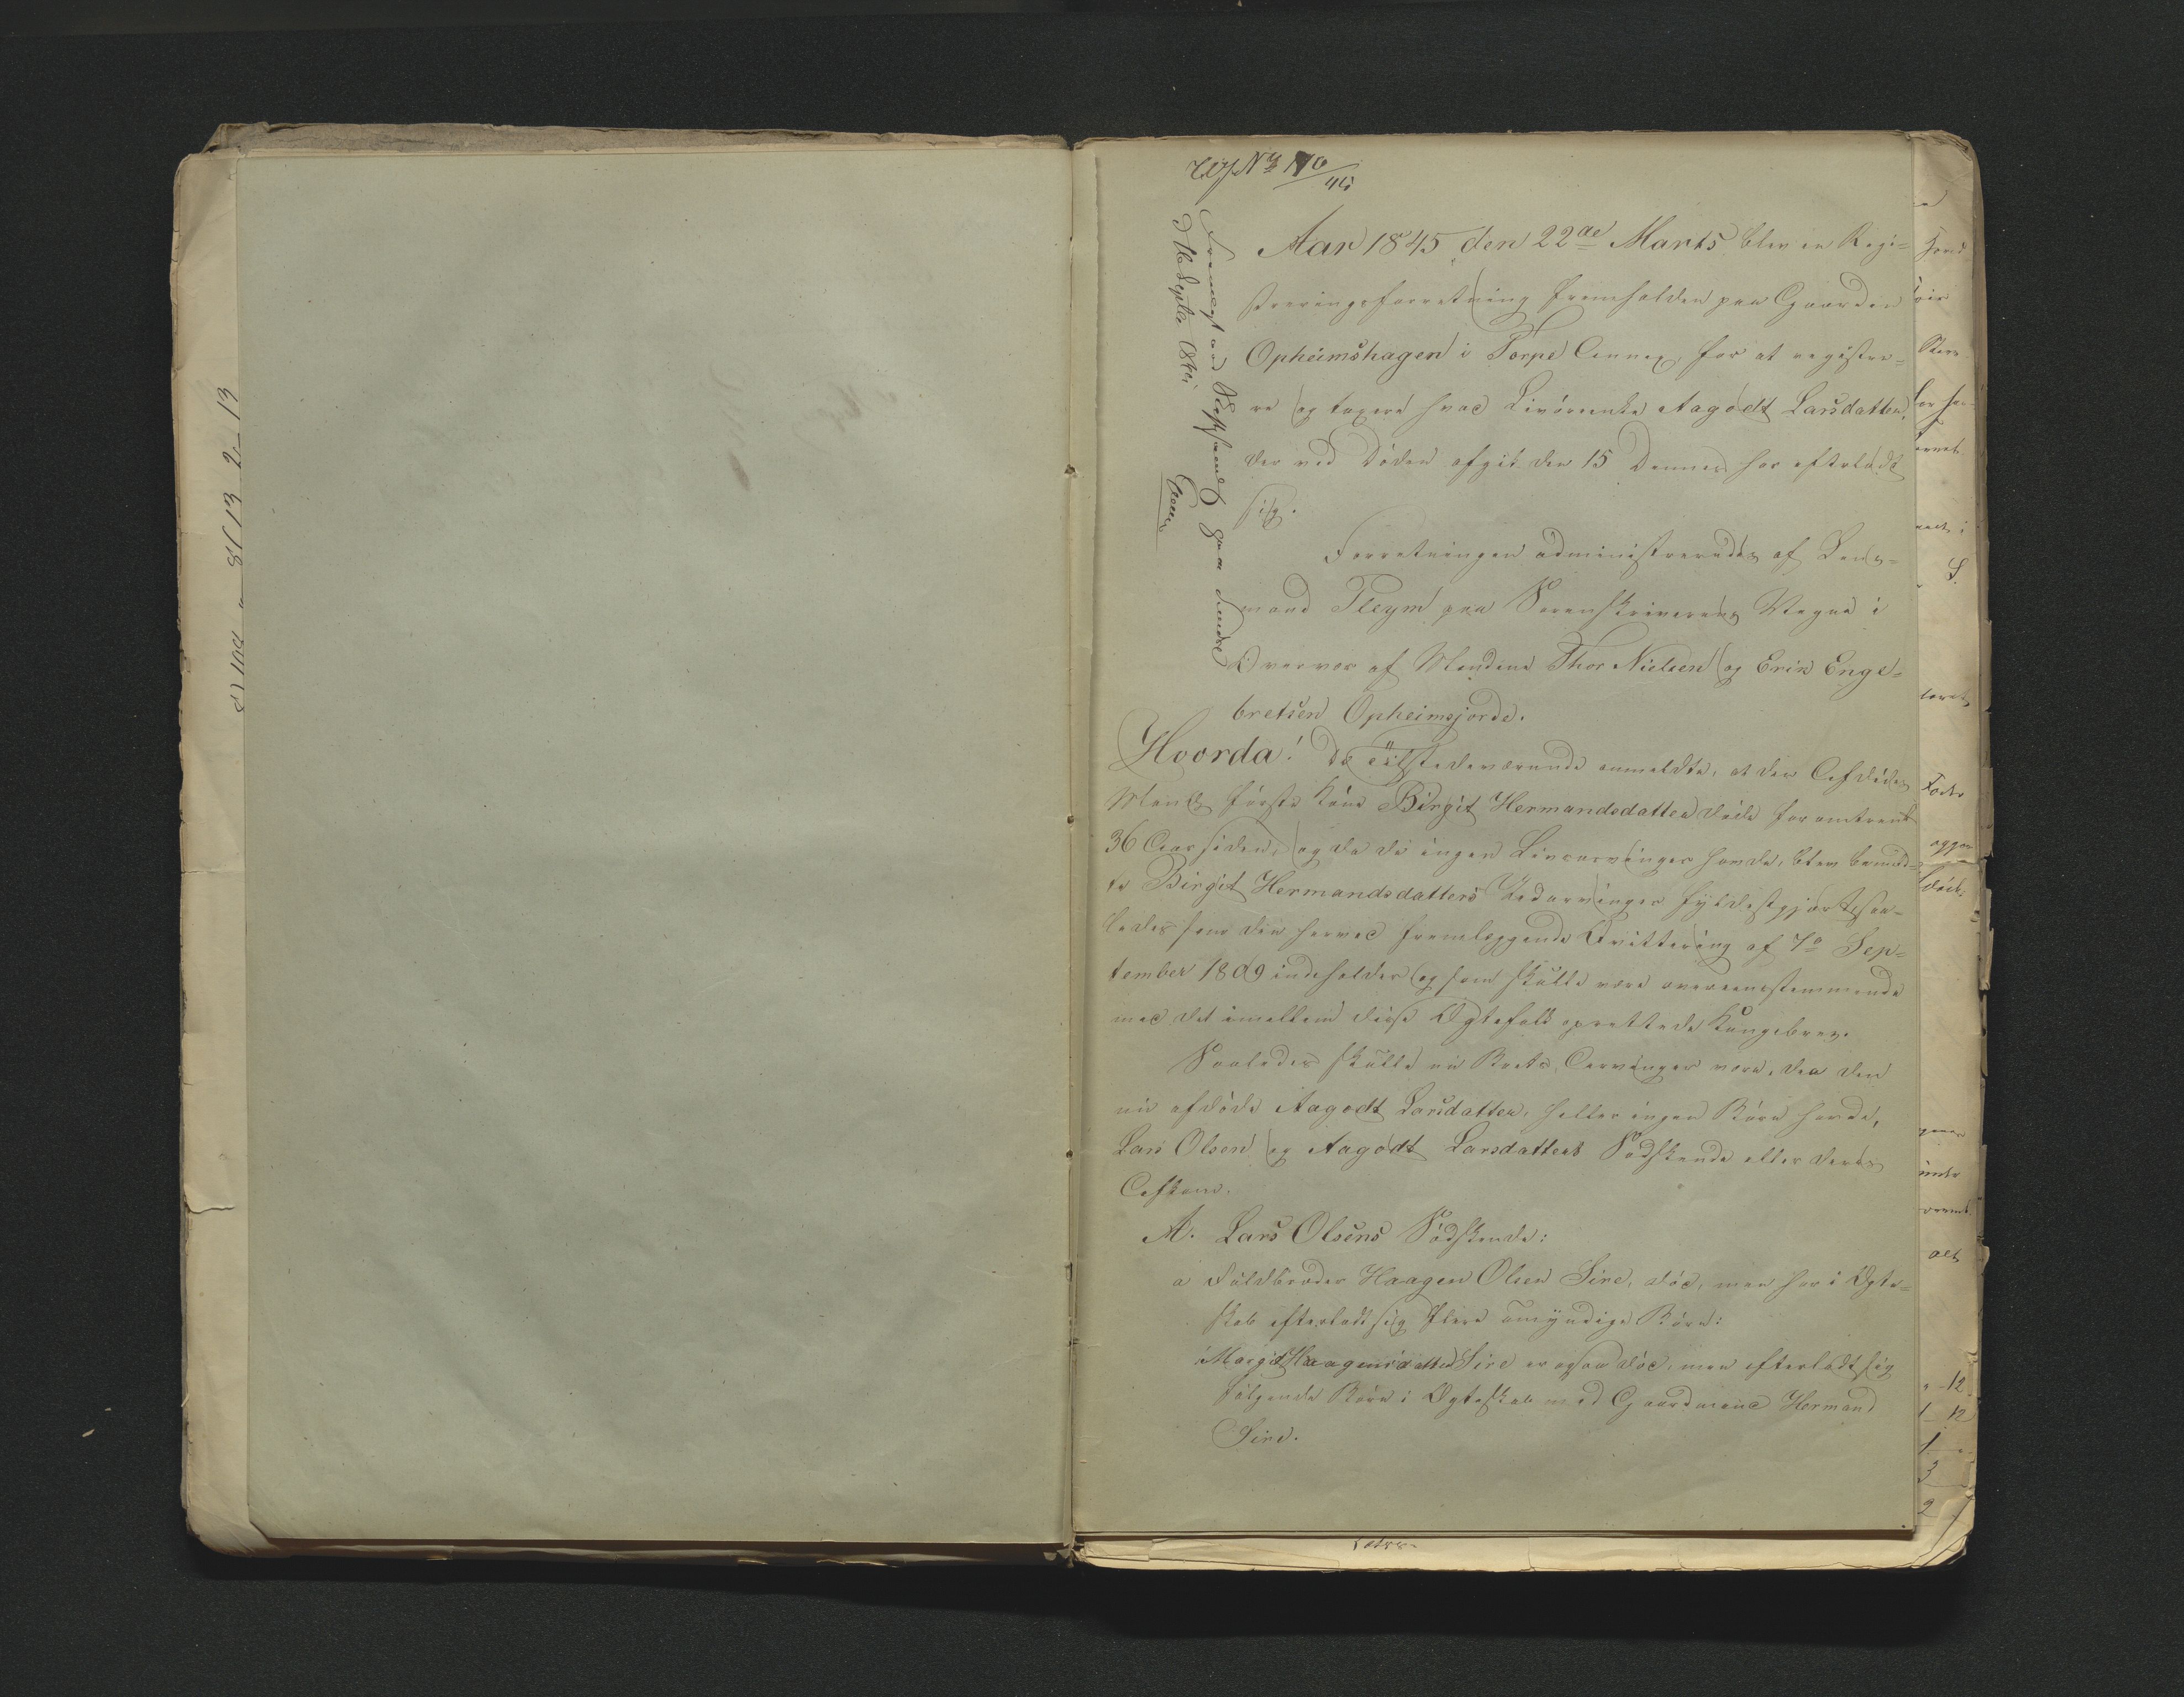 No 170/45
Fremlagt ved Skifteforretn paa Aandre
d 16 Septbr 1845
Aar 1845 den 22de Marts blev en Regi=
streringsforretning fremholden paa Gaarden
Opheimshagen i Torpe Annex, for at registre=
re og taxere hvad Livöreenke Aagodt Larsdatter,
der ved Döden afgik den 15 Dennes har efterladt
sig.
Forretningen administreredes af Lens=
mand Pleym paa Sorenskriverens Vegne i
Overvær af Mændene Thor Nielsen og Erik Enge=
bretsen Opheimsjorde.
Hvorda! De Tilstedeværende anmeldte, at den Afdödes
Mands förste Kone Birgit Hermandsdatter döde for omtrent
36 Aar siden, og da de ingen Livsarvinger havde, blev bemeld=
te Birgit Hermandsdatters Udarvinger fyldestgjort saa=
ledes som den herved fremleggende Qvittering af 7de Sep=
tember 1809 indeholder og som skulle være overeensstemmende
med det imellem disse Ægtefolk oprettede Kongebrev.
Saaledes skulle nu Boets Arvinger være, da den
nu afdöde Aagodt Larsdatter, heller ingen Börn havde,
Lars Olsens og Aagodt Larsdatters Södskende eller deres
Afkom.
A. Lars Olsens Södskende:
a Fuldbroder Haagen Olsen Sire, död, men har i Ægte=
skab efterladt sig flere umyndige Börn:
Margit Haagensdatter Sire er ogsaa död, men efterladt sig
fölgende Börn i Ægteskab med Gaardmand Hermand
Sire.